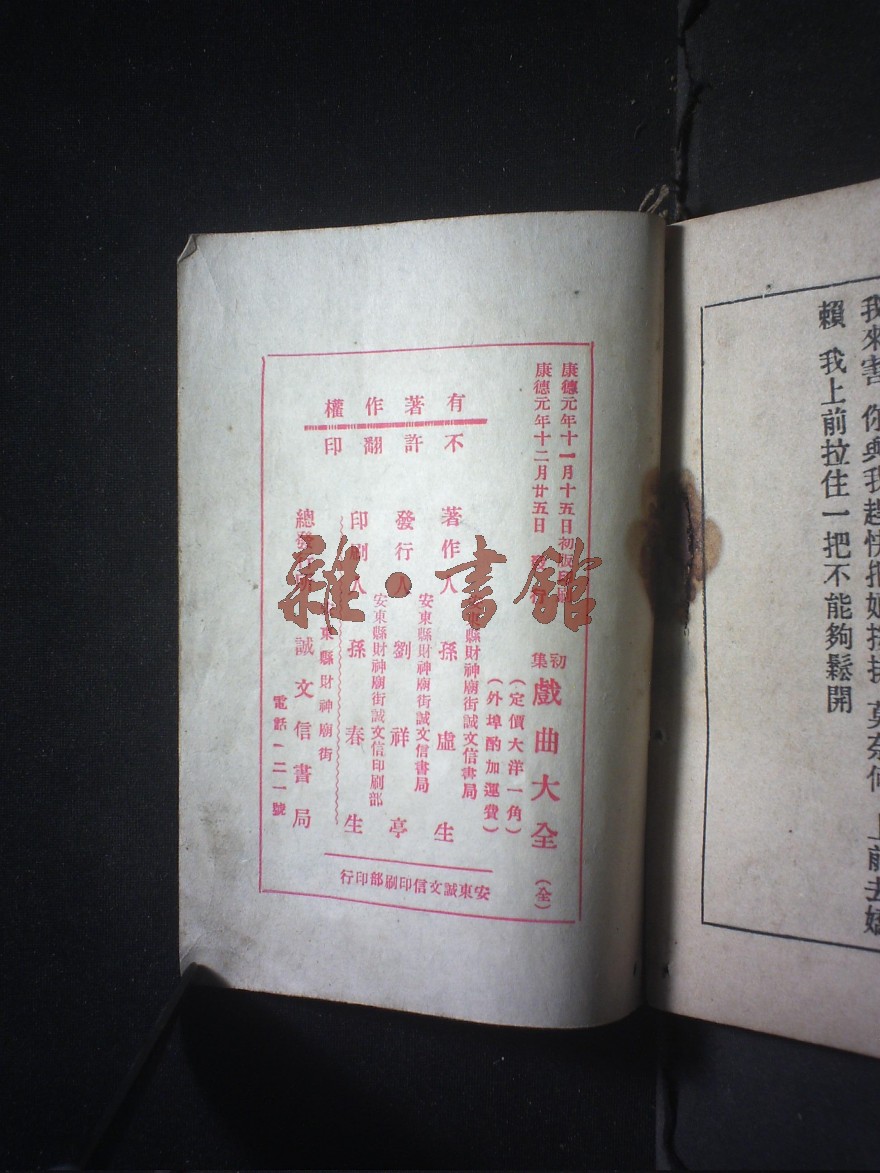 我來害 你與我趕快把
賴 我上前拉住一把不能夠鬆開
康德元年十一月十五日初版
康德元年十二月廿五日
初集 戲曲大全 （全）
（定價大洋一角）
（外埠酌加運費）
有著作權
不許翻印
著作人 孫虛生
東縣財神廟街誠文信書局
發行人 劉祥亭
安東縣財神廟街誠文信書局
印刷人 孫春生
安東縣財神廟街誠文信印刷部
總發 誠文信書局
東縣財神廟街
電話一二一號
安東誠文信印刷部印行
雜·書館